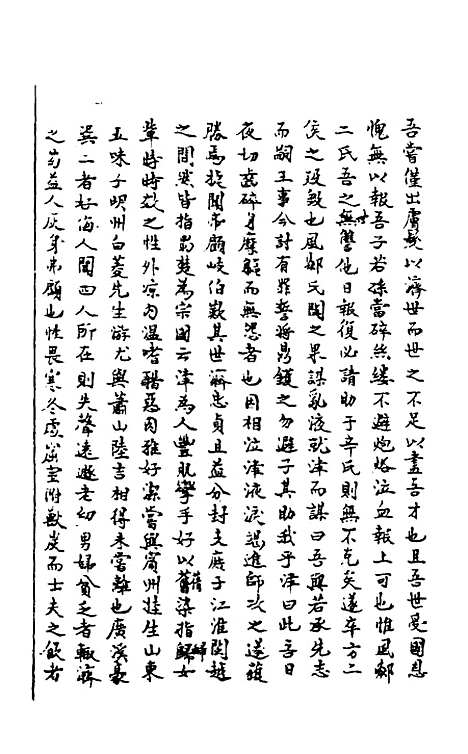 吾嘗僅出膚髮以濟世而世之不足以盡吾才也且吾世憂國恩
愧無以報吾子若孫當碎無縷不避炮烙泣血報上可也惟風鄒
二氏吾之世無讐他日報復必請助于辛氏則無不克矣遂卒方二
侯之殁斂也風鄒氏聞之果謀亂液就津而謀曰吾與若承先志
而嗣王事今討有罪誓將鼎鑊之勿避子其助我乎津曰此吾日
夜切齒碎身糜軀而無怨者也因相泣津液淚竭進師次之遂獲
勝焉旋聞帝顧岐伯歎其世濟忠貞且益分封支庶子江淮閩越
之間冀皆指蜀楚為宗國云津為人豐肌學手好以舊染指歸女
輩時時效之性外涼内温嗜醋惡肉雅好潔嘗與賓州桂生山東
五味子明州白菱先生游尤與蕭山陸吉相得未嘗離也廣溪
巽二者好侮人聞四人所在則失聲遠遯老幼男婦貧乏者輒濟
之苟益人灰身弗顧也性畏寒冬處窟室附獸炭而士夫之飲者